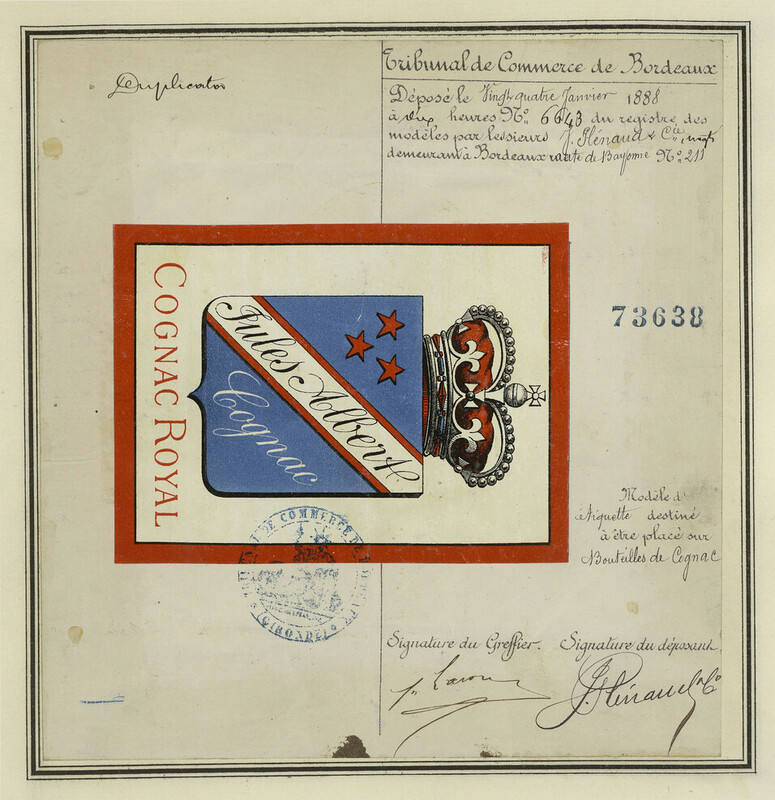 Duplicata
Tribunal de Commerce de Bordeaux
Déposé le Vingt quatre Janvier 1888
à dix heures No. 6643 du registre des
modèles par Messieurs J. Hénaud & Cie, négts
demeurant à Bordeaux route de Bayonne No. 211
COGNAC ROYAL
Jules Albert
Cognac
73638
Modèle d'
étiquette destiné
à être placé sur
Bouteilles de Cognac
DE COMMERCE DE
(GIRONDE)
Signature du Greffier. Signature du déposant,
J. Hénaud & Co